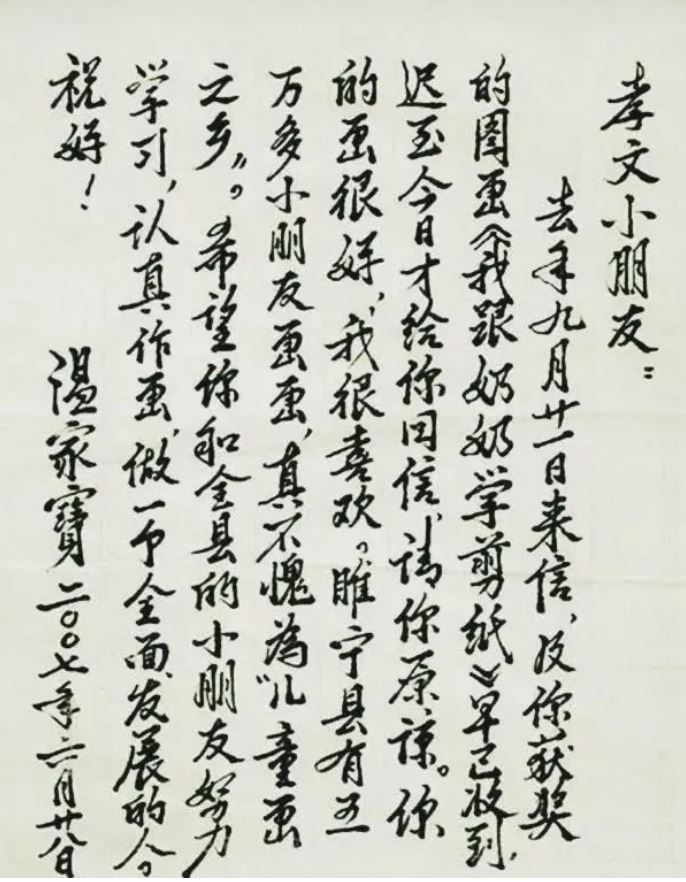 孝文小朋友：
去年九月廿一日来信，及你获奖
的图画《我跟奶奶学剪纸》早已收到，
迟至今日才给你回信，请你原谅。你
的画很好，我很喜欢。睢宁县有五
万多小朋友画画，真不愧为“儿童画
之乡”。希望你和全县的小朋友努力
学习，认真作画，做一个全面发展的人。
祝好！
温家寶 二〇〇七年二月廿八日